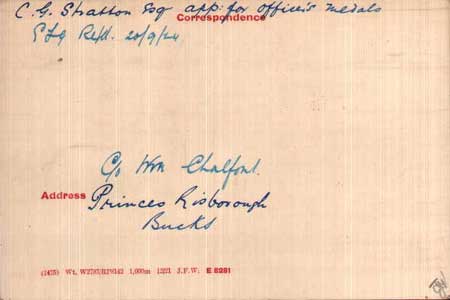 C. G. Stratton Esq app: for officer's medals
Correspondence
Refd. 20/9/24
C/o Wm Chalfont.
Address Princes Risborough
Bucks
1,000m 12/21 J.F.W. E 8281